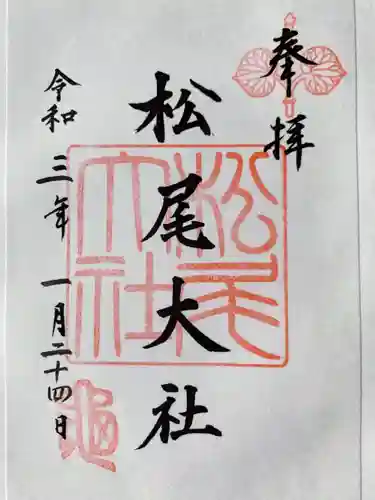 奉拝
松尾大社
松尾大社
令和三年一月二十四日